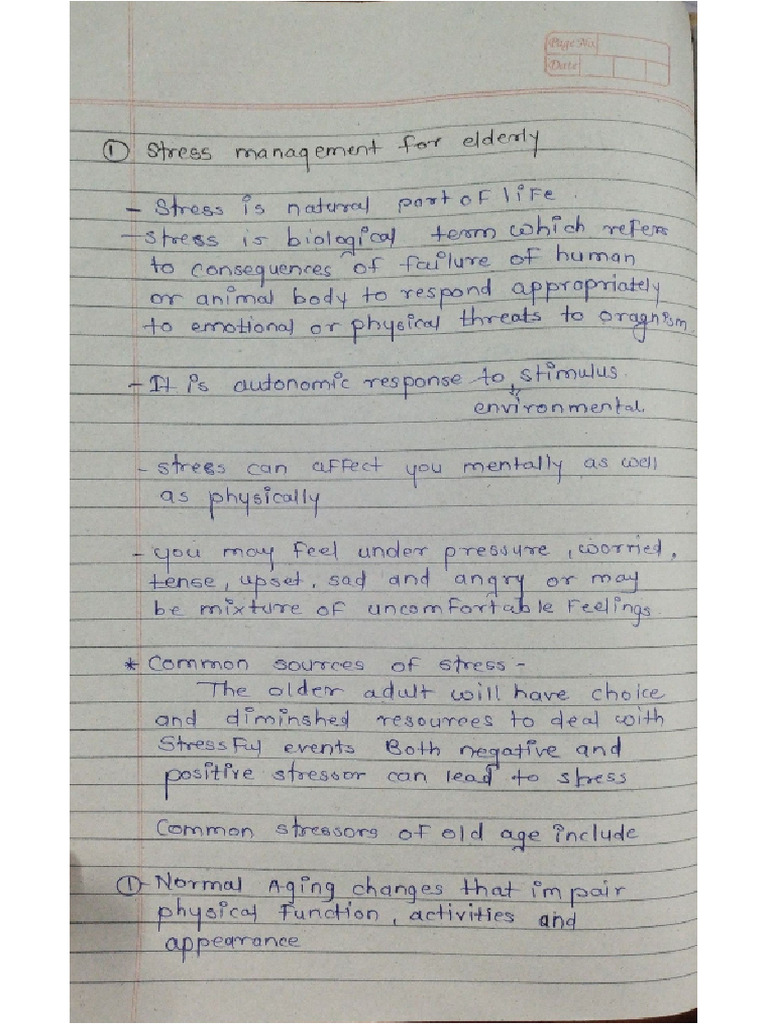 Page No.
Date
① Stress management for elderly
- Stress is natural part of life.
- stress is biological term which refers
to consequences of failure of human
or animal body to respond appropriately
to emotional or physical threats to oragnism
- It is autonomic response to stimulus.
environmental.
- stress can affect you mentally as well
as physically
- you may feel under pressure, worried,
tense, upset, sad and angry or may
be mixture of uncomfortable feelings.
* Common sources of stress -
The older adult will have choice
and diminshed resources to deal with
stressful events Both negative and
positive stressor can lead to stress
Common stressors of old age include
① - Normal Aging changes that impair
physical function, activities and
appearance